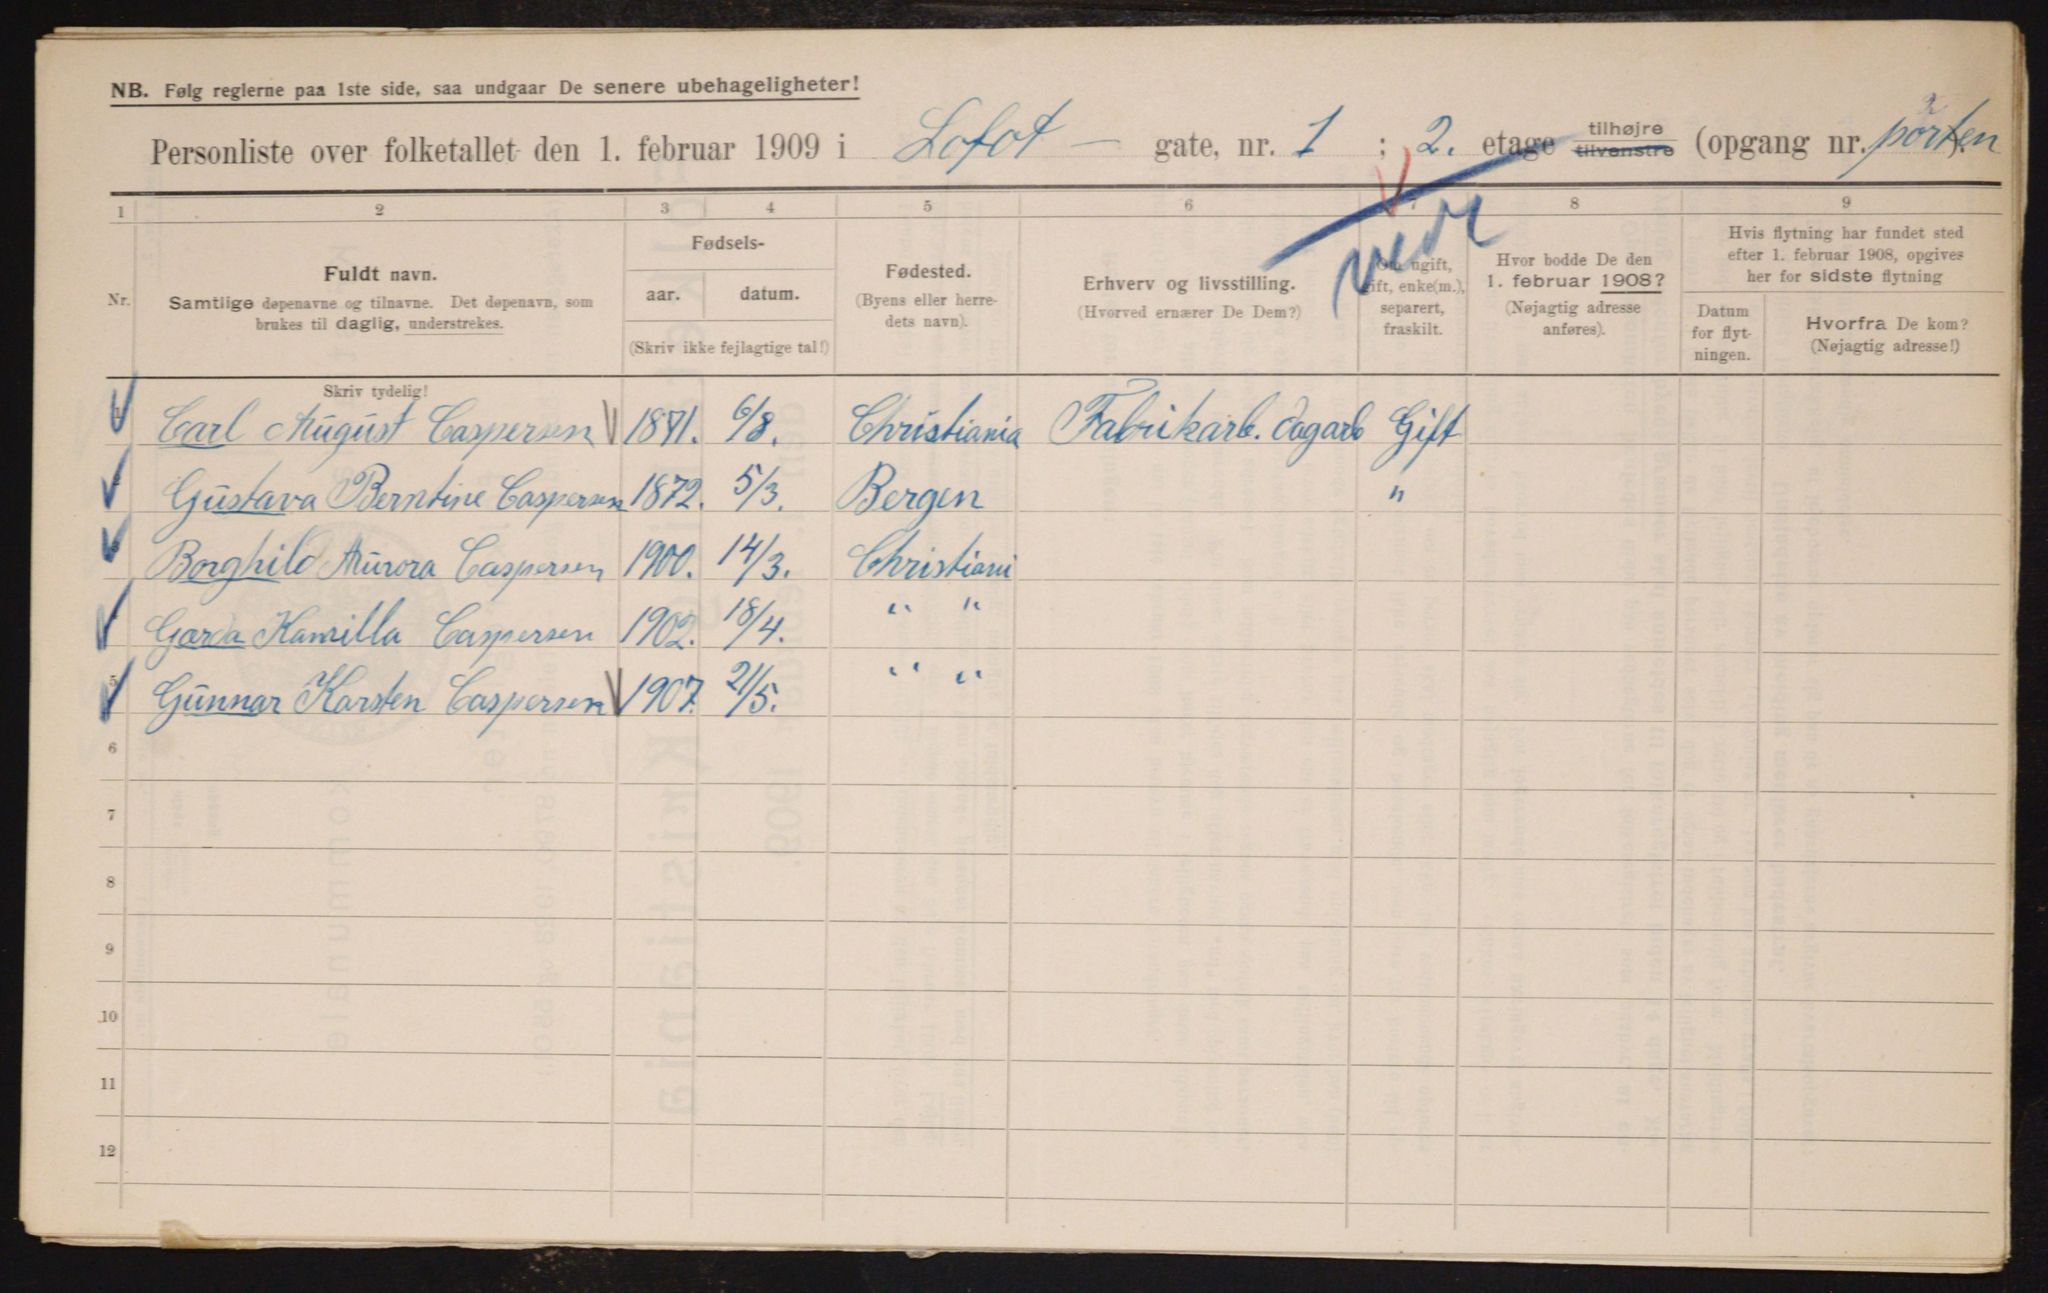 NB. Følg reglerne paa 1ste side, saa undgaar De senere ubehageligheter!
Personliste over folketallet den 1. februar 1909 i Lofot — gate, nr. 1 ; 2. etage tilhøjre tilvenstre (opgang nr. porten ).
2
1 2 3 4 5 6 7 8 9
Nr.
Fuldt navn.
Samtlige døpenavne og tilnavne. Det døpenavn, som
brukes til daglig, understrekes.
Fødsels-
aar. datum.
(Skriv ikke fejlagtige tal!)
Fødested.
(Byens eller herre-
dets navn).
Erhverv og livsstilling.
(Hvorved ernærer De Dem?)
Om ugift,
gift, enke(m.),
separert,
fraskilt.
Hvor bodde De den
1. februar 1908?
(Nøjagtig adresse
anføres).
Hvis flytning har fundet sted
efter 1. februar 1908, opgives
her for sidste flytning
Datum
for flyt-
ningen.
Hvorfra De kom?
(Nøjagtig adresse!)
Skriv tydelig!
Carl August Caspersen 1871. 6/8. Christiania Fabrikarb. dagarb Gift
Gustava Berntine Caspersen 1872. 5/3. Bergen "
Borghild Aurora Caspersen 1900. 14/3. Christiani
Garda Kamilla Caspersen 1902. 18/4. " "
5 Gunnar Karsten Caspersen 1907. 21/5. " "
6
7
8
9
10
11
12